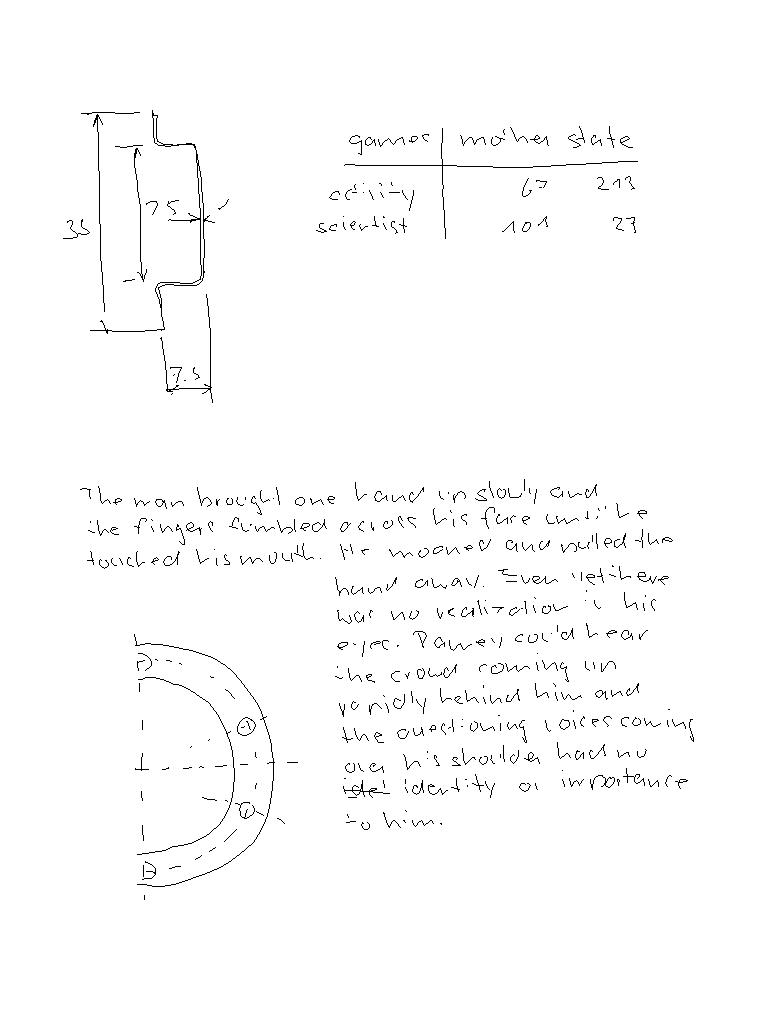 games mother state
activity 67 213
scientist 101 27
35
25
7.5
The man brought one hand up slowly and
the fingers fumbled across his face until he
touched his mouth. He moaned and pulled the
hand away. Even yet there
was no realization in his
eyes. Ramey could hear
the crowd coming up
rapidly behind him and
the questioning voices coming
over his shoulder had no
identity or importance
to him.